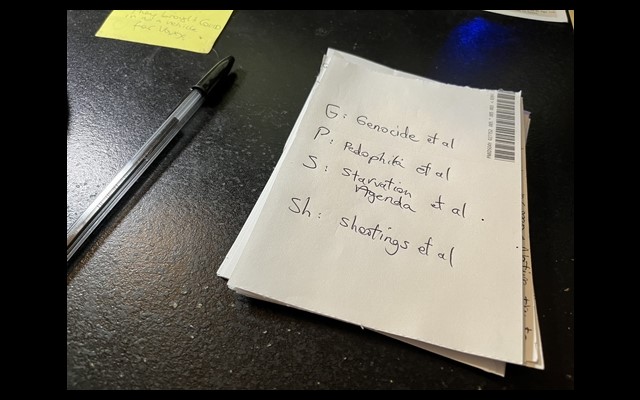 for
G: Genocide et al
P: Pedophilia et al
S: Starvation
Agenda et al.
Sh: Shootings et al